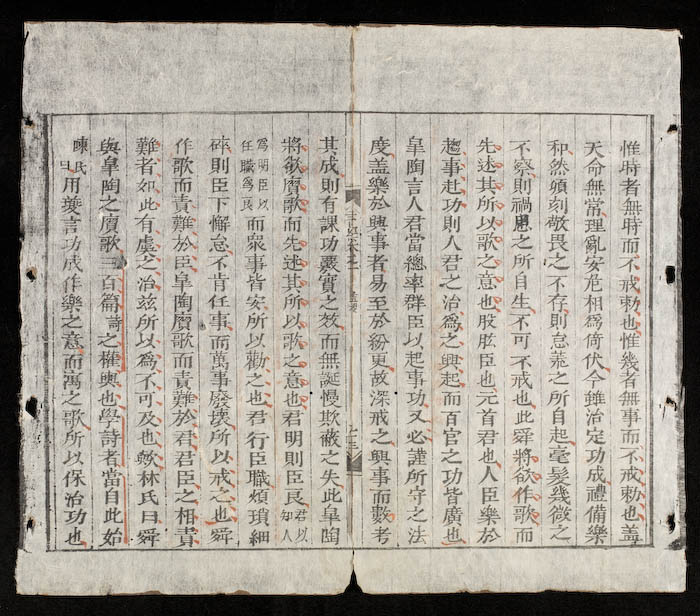 惟時者無時而不戒勅也惟幾者無事而不戒勅也盖
天命無常理亂安危相為倚伏今雖治定功成禮備樂
和然頃刻敬畏之不存則怠荒之所自起毫髮幾微之
不察則禍患之所自生不可不戒也此舜將欲作歌而
先述其所以歌之意也股肱臣也元首君也人臣樂於
趨事赴功則人君之治為之興起而百官之功皆廣也
皐陶言人君當總率群臣以起事功又必謹所守之法
度盖樂於興事者易至於紛更故深戒之興事而數考
其成則有課功覈實之效而無誕慢欺蔽之失此皐陶
將欲賡歌而先述其所以歌之意也君明則臣良君以知人
為明臣以任職為良而衆事皆安所以勸之也君行臣職煩瑣細
碎則臣下懈怠不肯任事而萬事廢壊所以戒之也舜
作歌而責難於臣皐陶賡歌而責難於君君臣之相責
難者如此有虞之治茲所以為不可及也歟林氏曰舜
與皐陶之賡歌三百篇詩之權輿也學詩者當自此始
陳氏曰用夔言功成作樂之意而寓之歌所以保治功也